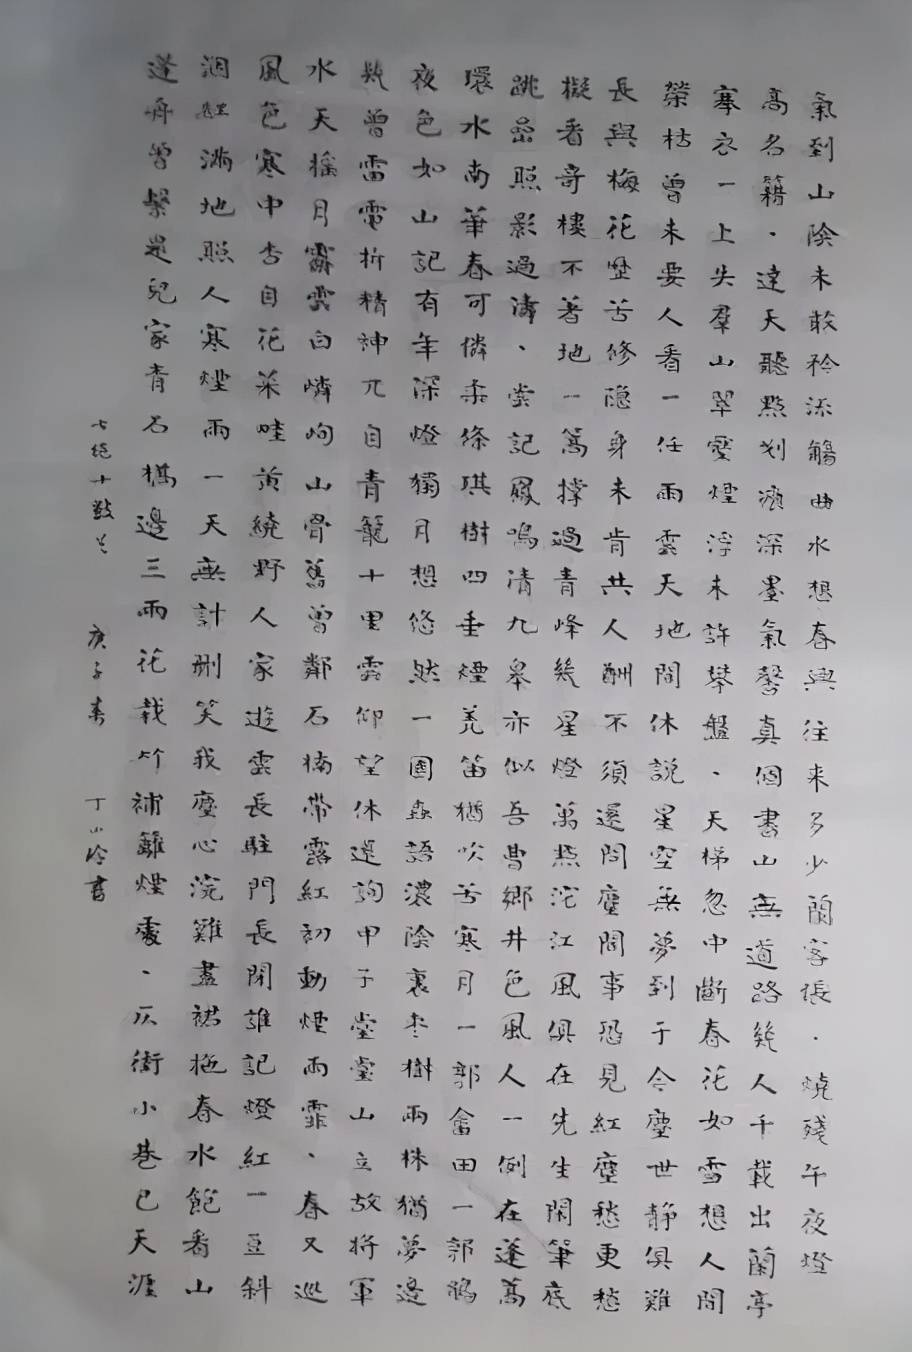 氣到山陰未敢矜流觴曲水想春興往来多少蘭客悵·燒殘午夜燈
高名籍·達天聽點划瀕深墨氣馨真個書山無道路幾人千載出蘭亭
搴衣一上失羣山翠壓煙浮未許攀盤、天梯忽中斷春花如雪想人間
榮枯曾未要人看一任雨雲天地間休説星空無夢到于今塵世静俱難
長與梅花歷苦修隐身未肯共人酬不須還問塵間事恐見紅塵愁更愁
擬看奇樓不著地一篙撑過青峰幾星燈萬點沱江風俱在先生閑筆底
跳嵒照影過濤、嘗記鳳鳴清九皋亦似吾曹鄉井色風人一例在蓬蒿
環水南華春可憐柔條琪樹四垂煙羌笛猶吹苦寒月一郭畬田一郭鵑
夜色如山記有年深燈獨月想悠然一園蟲語濃陰裏枣樹兩株猶夢邊
歎曾雷電折精神兀自青籠十里雲仰望休還詢甲子堂堂山立故將軍
水天摇月霽雲白嶙峋山骨舊曾鄰石楠带露紅初動煙雨霏、春又巡
風色寒中杏自花菜畦黄繞野人家遊雲長駐門長閉誰記燈紅一豆斜
涸 滿地照人寒煙雨一天無計删笑我塵心浣難盡裙拖春水飽看山
蓬舟曾繫是兒家青石橋邊三兩花栽竹補籬煙處、仄街小巷已天涯
七绝十数首 庚子春 丁小玲書